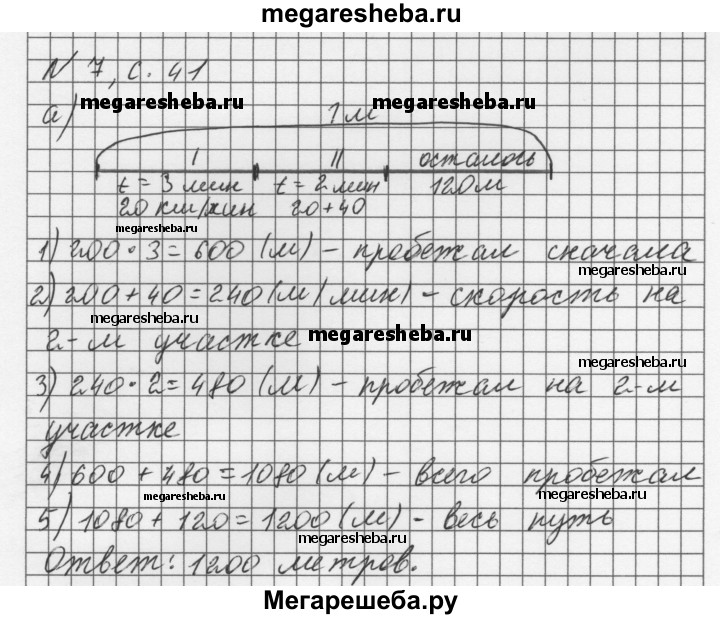 megaresheba.ru
N 7, с. 41
а) megaresheba.ru megaresheba.ru
? м
I II осталось
t = 3 мин t = 2 мин 120м
20 км/мин 20+40
megaresheba.ru
1) 200 · 3 = 600 (м) - пробежал сначала
megaresheba.ru
2) 200 + 40 = 240 (м/мин) - скорость на
megaresheba.ru
2-м участке megaresheba.ru
megaresheba.ru
3) 240 · 2 = 480 (м) - пробежал на 2-м
участке
4) 600 + 480 = 1080 (м) - всего пробежал
megaresheba.ru megaresheba.ru
5) 1080 + 120 = 1200 (м) - весь путь
Ответ: 1200 метров.
Мегарешеба.ру